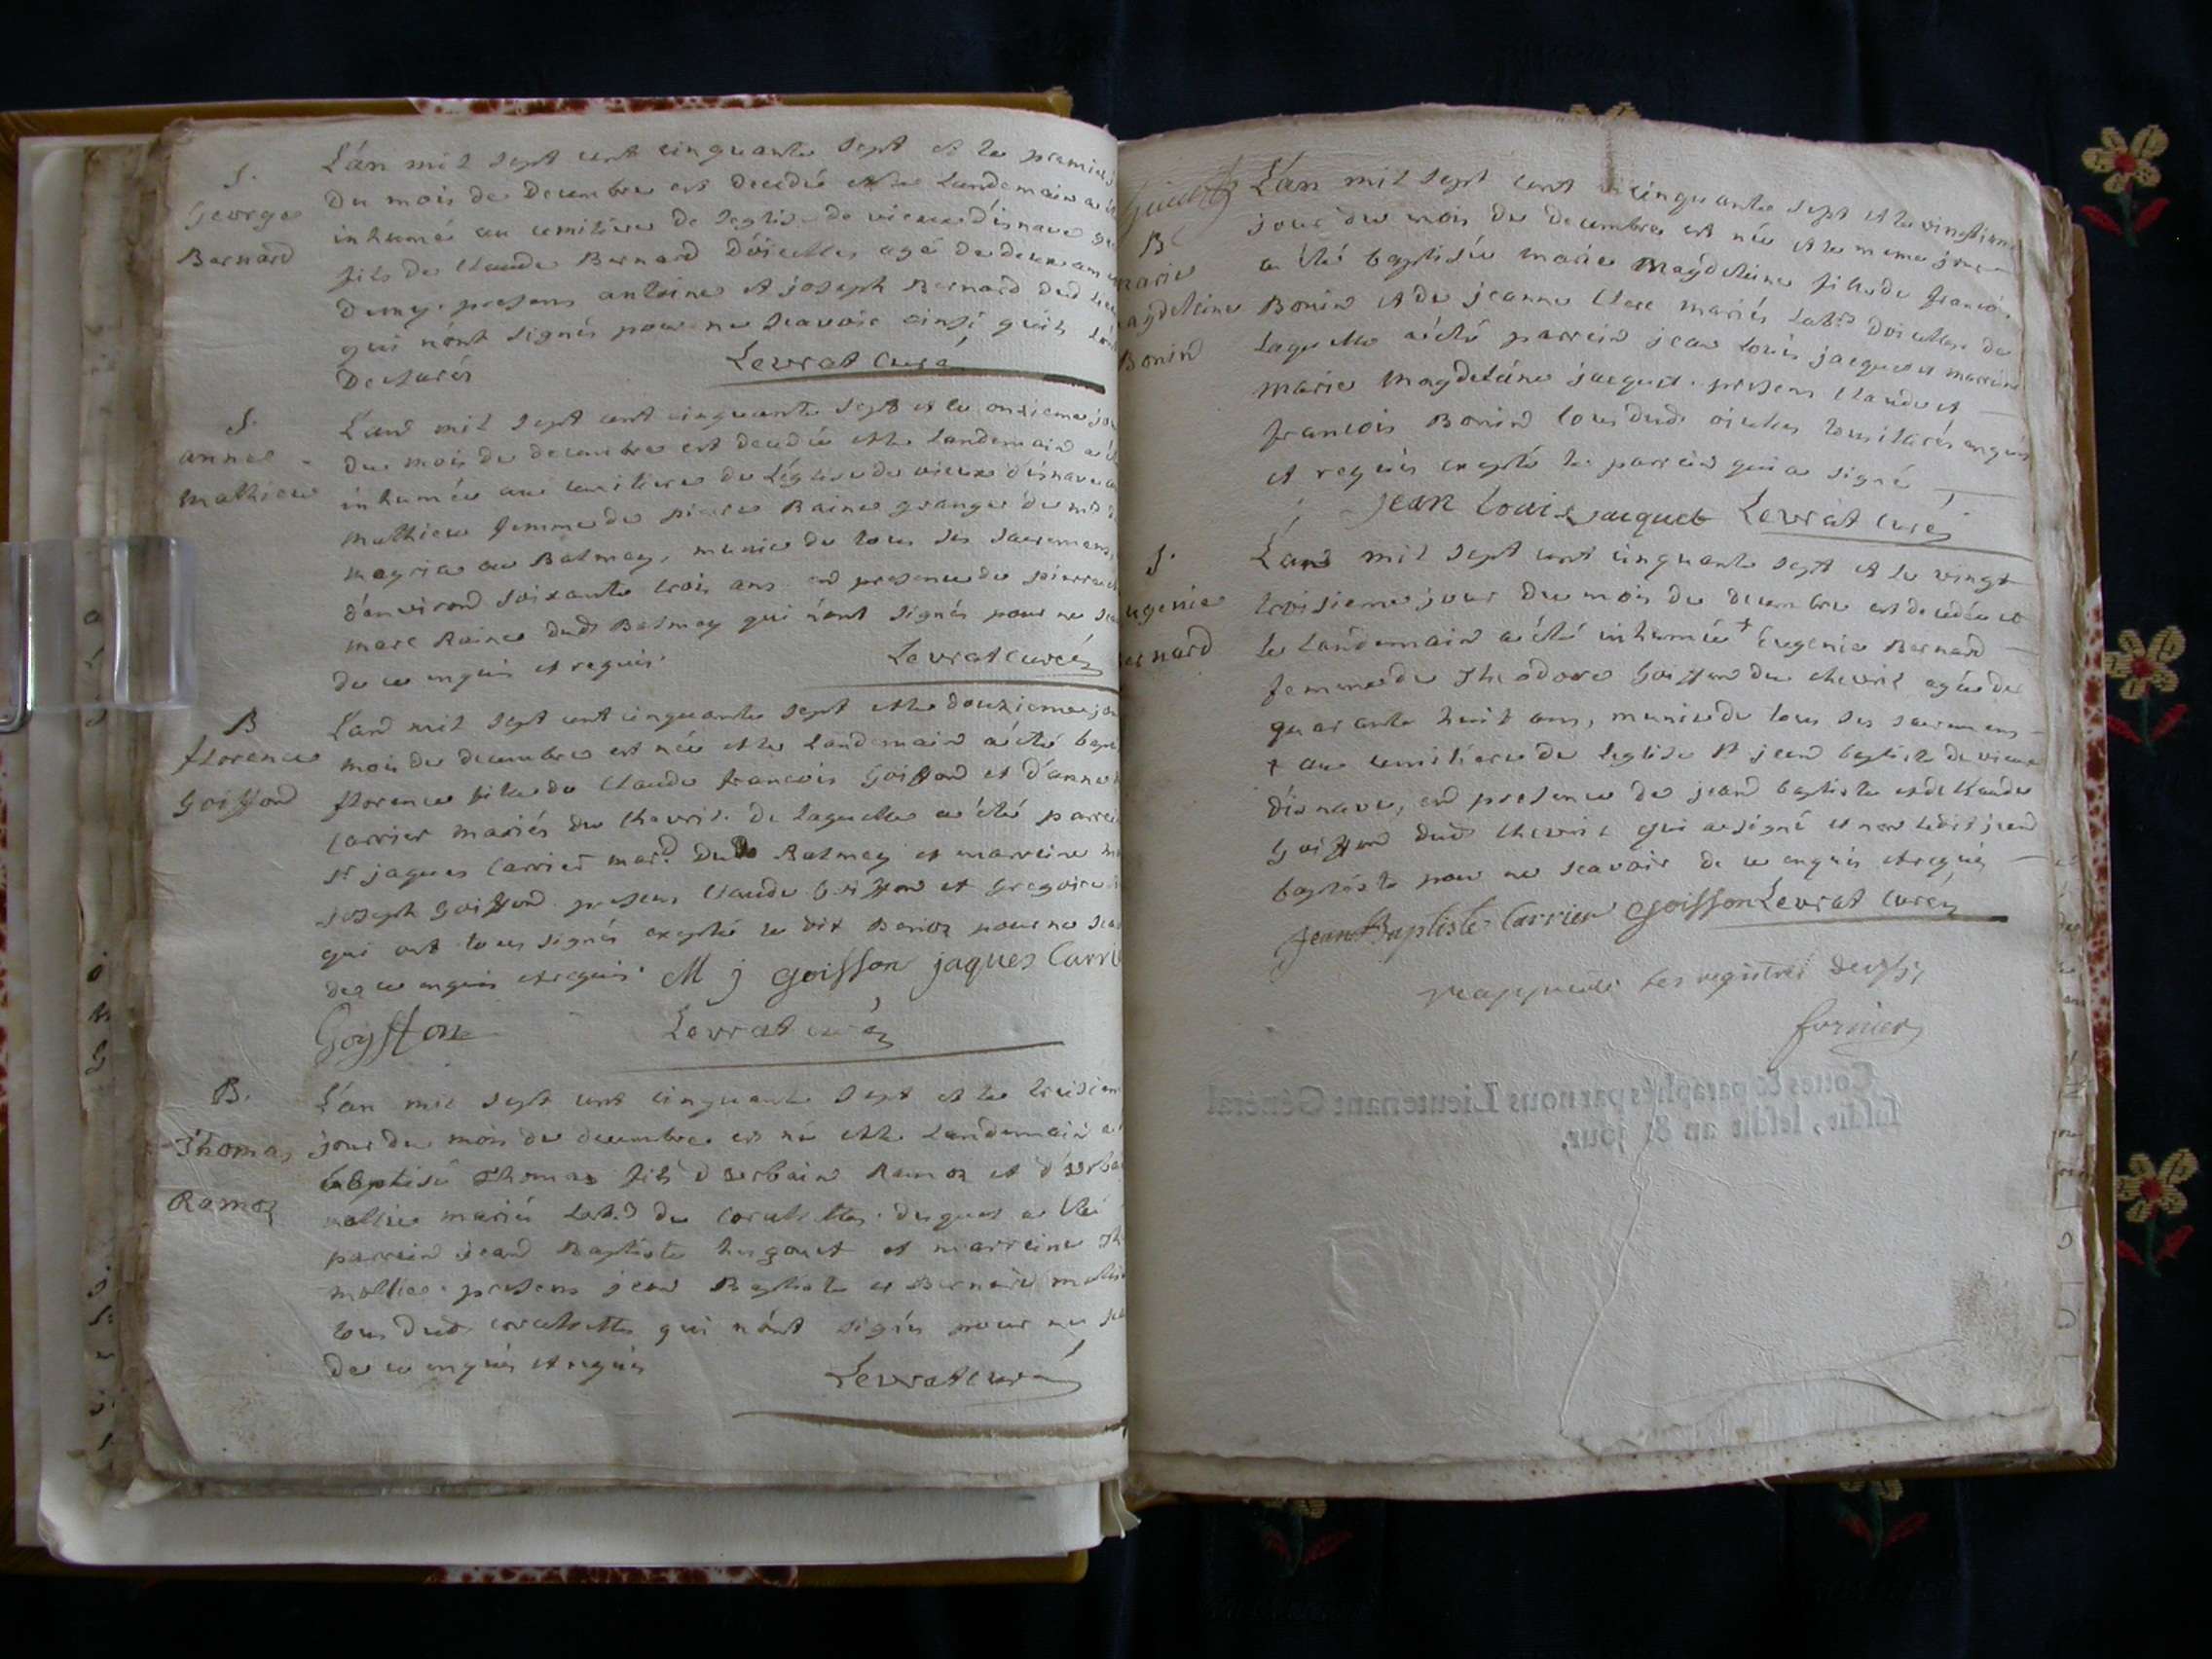 S.
George
Bernard
L'an mil sept cent cinquante sept et le premier
du mois de decembre est decedé et le landemain a
inhumé au cimitiere de leglise de vieux d'isnave
fils de claude Bernard d'oisselles agé de deux ans
demy. presens antoine et joseph Bernard dud
qui n'ont signés pour ne scavoir ainsi quils
declarés
Levrat curé
S.
anne
mathieu
L'an mil sept cent cinquante sept et le onzieme
du mois de decembre est decedée et le landemain a
inhumée au cimitiere de leglise de vieux d'isnave
mathieu femme de pierre Raine granger de
magria au Balmay, munie de tous ses sacremens
d'environ soixante trois ans en presence de pierre
marc Raine dud Balmay qui n'ont signés pour ne
de ce enquis et requis.
Levrat curé
B
florence
Goiffond
L'an mil sept cent cinquante sept et le douzieme
mois de decembre est née et le landemain a été
florence fille de claude francois Goiffond et d'anne
Carrier mariés de chevril. de laquelle a été
Sr jaques Carrier mard. dud Balmay et marreine
joseph Goiffond presens claude Goiffon et Gregoire
qui ont tous signés excepté le dit Benoz pour ne
de ce enquis et requis. M j Goiffon jaques Carri
Goyffon
Levrat curé
B.
Thomas
Ramoz
L'an mil sept cent cinquante sept et le
jour du mois de decembre est né et le landemain a
baptisé Thomas fils d'urbain Ramoz et
mollie mariés lab.d de corcelette. duquel a été
parrein jean Baptiste hugonet et marreine
mollie. presens jean Baptiste et Bernard
tous dud corcelette qui n'ont signés pour ne
de ce enquis et requis
Levrat curé
B
marie
magdeleine
Bonin
L'an mil sept cent cinquante sept et le vingtieme
jour du mois de decembre est née et le meme jour
a été baptisée marie magdeleine fille de francois
Bonin et de jeanne clerc mariés lab.d d'oisselles de
laquelle a été parrein jean louis jacquet et marreine
marie magdelaine jacquet. presens claude et
francois Bonin tous dud oiselles tous illitérés enquis
et requis excepté le parrein qui a signé
jean louis jacquet Levrat curé
S.
eugenie
Bernard
L'an mil sept cent cinquante sept et le vingt
troisieme jour du mois de decembre est decedée et
le landemain a été inhumée + Eugenie Bernard
femme de Theodore Goiffon de chevril agée de
quarante huit ans, munie de tous ses sacremens
+ au cimitiere de leglise st jean baptiste de vieux
d'isnave, en presence de jean baptiste et de claude
Goiffon dud chevril qui a signé et non ledit jean
baptiste pour ne scavoir de ce enquis et requis
Jean Baptiste Carrier Goiffon Levrat curé
les registres
fornier
Cottes & paraphés par nous Lieutenant Général
susdit, lesdit an & jour.